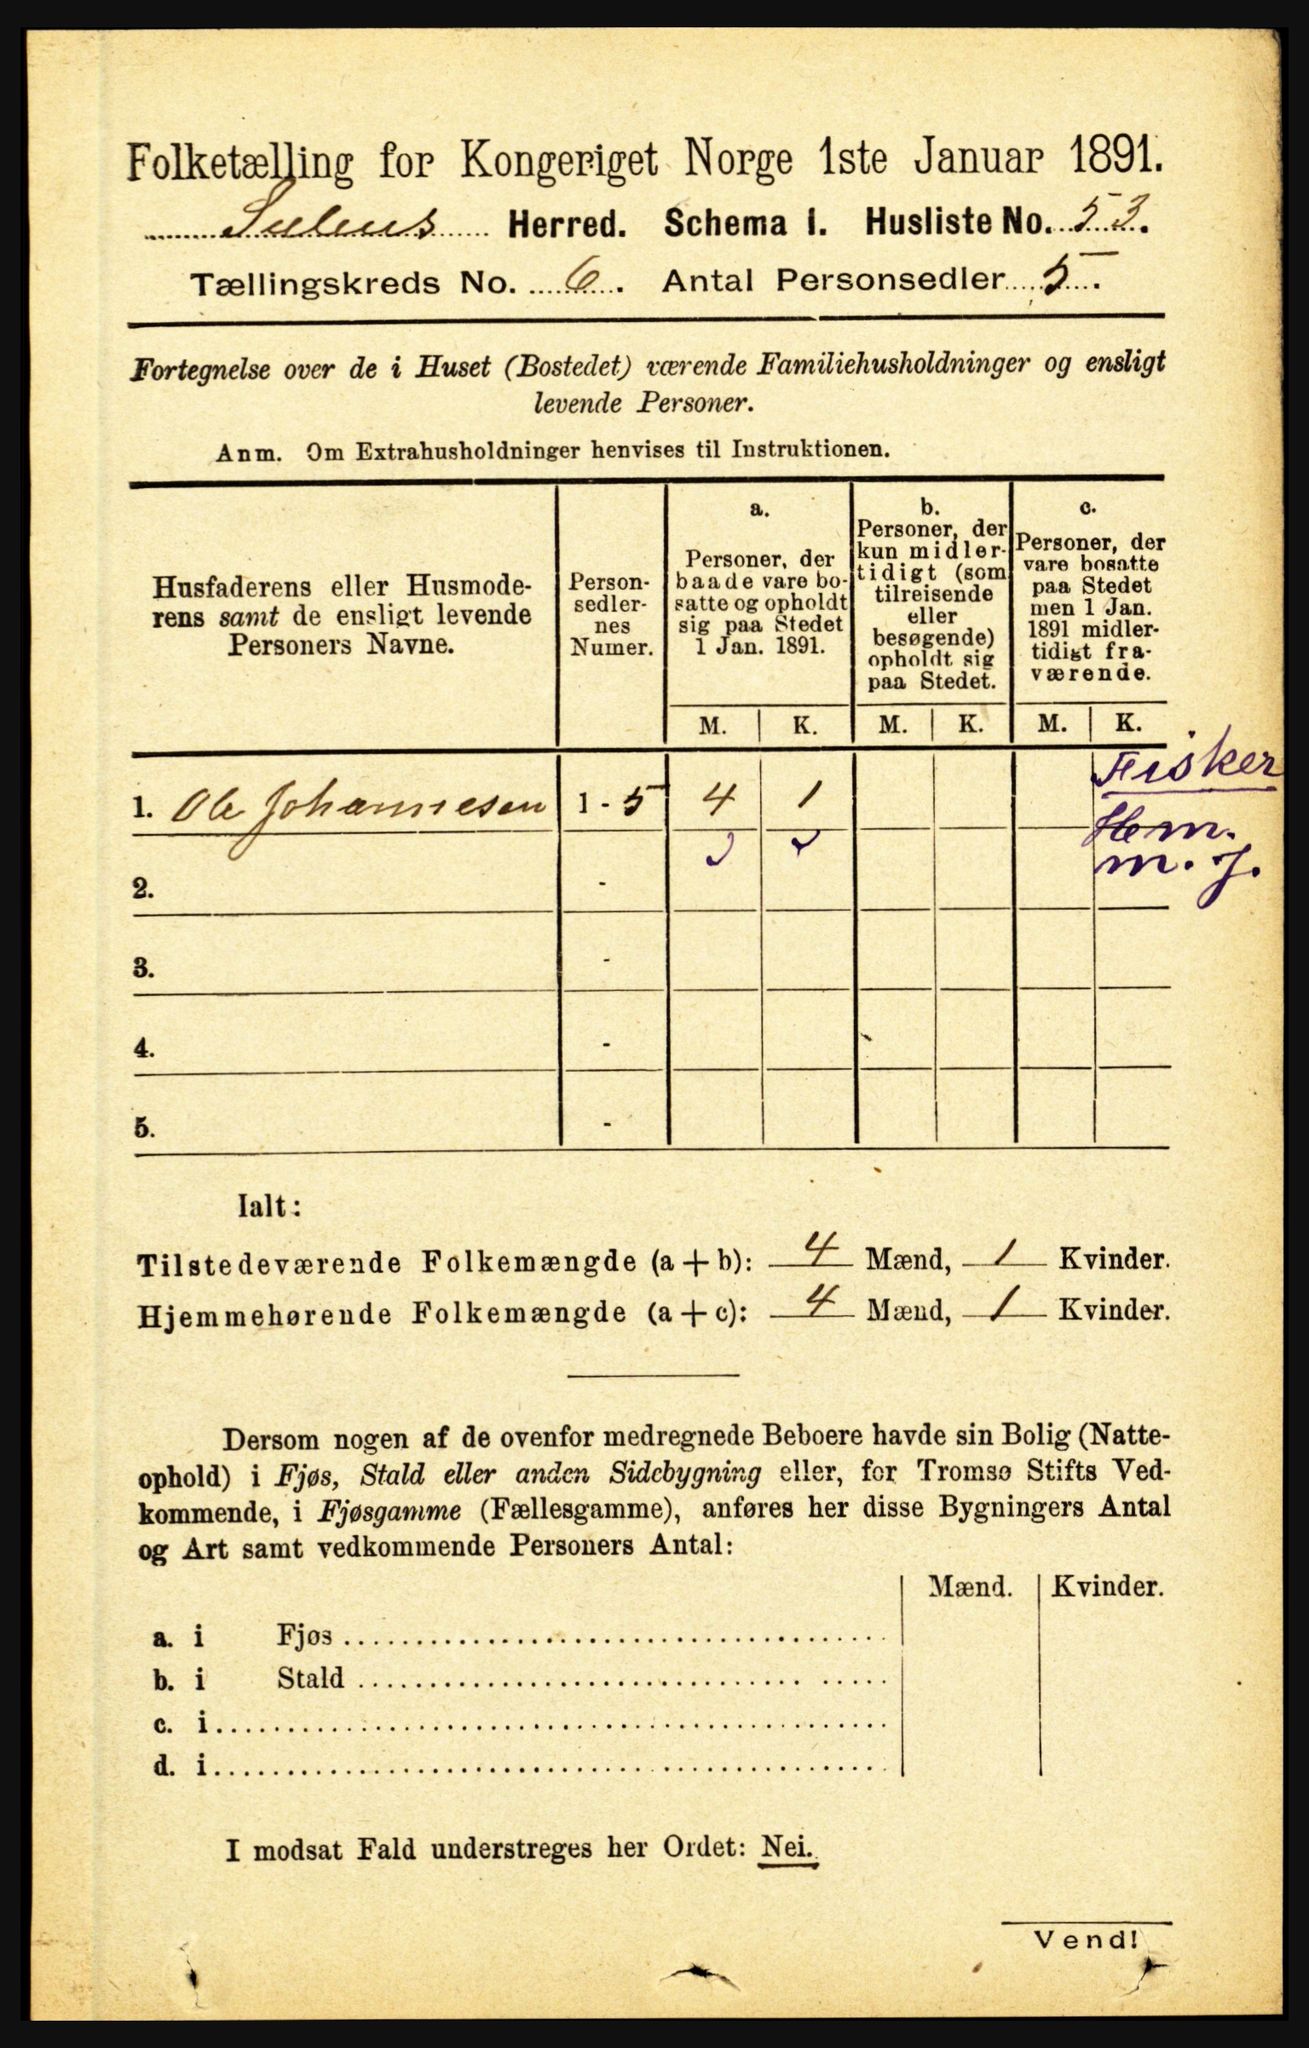 Folketælling for Kongeriget Norge 1ste Januar 1891.
Sulens Herred. Schema I. Husliste No. 53.
Tællingskreds No. 6. Antal Personsedler 5.
Fortegnelse over de i Huset (Bostedet) værende Familiehusholdninger og ensligt
levende Personer.
Anm. Om Extrahusholdninger henvises til Instruktionen.
Husfaderens eller Husmode-
rens samt de ensligt levende
Personers Navne.
Person-
sedler-
nes
Numer.
a.
Personer, der
baade vare bo-
satte og opholdt
sig paa Stedet
1 Jan. 1891.
b.
Personer, der
kun midler-
tidigt (som
tilreisende
eller
besøgende)
opholdt sig
paa Stedet.
c.
Personer, der
vare bosatte
paa Stedet
men 1 Jan.
1891 midler-
tidigt fra-
værende.
M. K. M. K. M. K.
Fisker
1. Ole Johannesen 1 - 5 4 1
Hm.
m. J.
2. -
3. -
4. -
5. -
Ialt:
Tilstedeværende Folkemængde (a + b): 4 Mænd, 1 Kvinder.
Hjemmehørende Folkemængde (a + c): 4 Mænd, 1 Kvinder.
Dersom nogen af de ovenfor medregnede Beboere havde sin Bolig (Natte-
ophold) i Fjøs, Stald eller anden Sidebygning eller, for Tromsø Stifts Ved-
kommende, i Fjøsgamme (Fællesgamme), anføres her disse Bygningers Antal
og Art samt vedkommende Personers Antal:
Mænd. Kvinder.
a. i Fjøs
b. i Stald
c. i
d. i
I modsat Fald understreges her Ordet: Nei.
Vend!